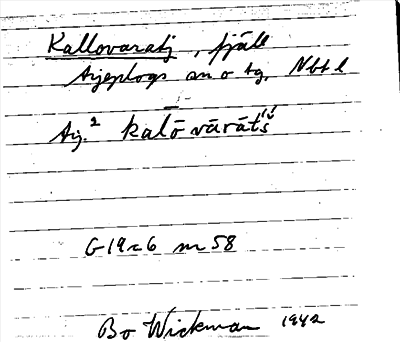 Kallovaratj, fjäll
Arjeplogs sn o tg, Nbt l
Arj.² kalō vārātś
G 19 c 6 m 58
Bo Wickman 1942